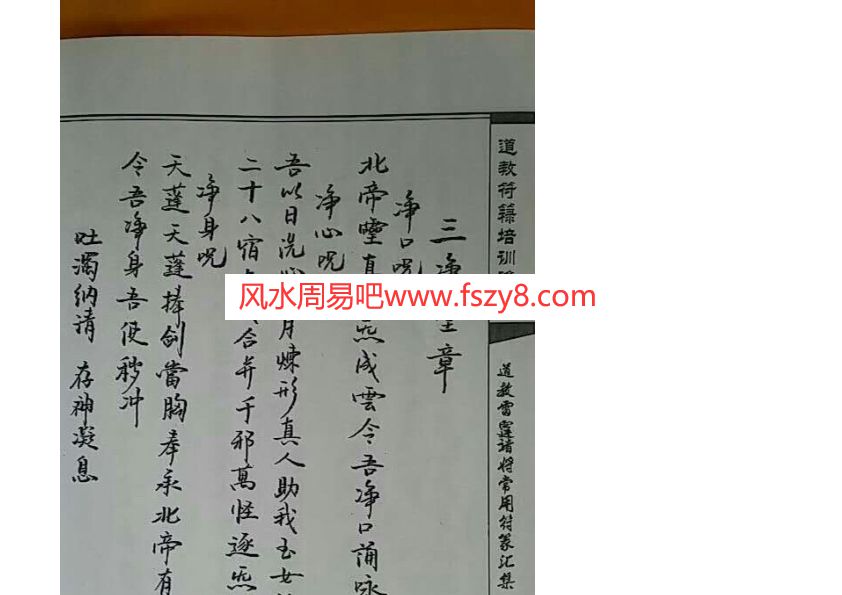 道教符籙培训
道教雷霆请将常用符篆汇集
三净章
净口呪
北帝靈真炁成雲令吾净口誦咏
净心呪
吾以日洗心月煉形真人助我玉女
二十八宿合并千邪萬怪逐炁
净身呪
天蓬天蓬捧剑當胸奉承北帝有
令吾净身吾使秽冲
吐濁纳清 存神凝息
风水周易吧www.fszy8.com